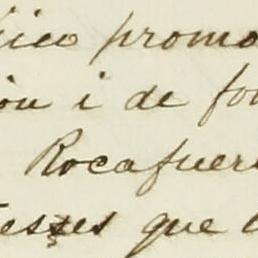 ico promo
ión i de fo
Rocafuer
eses que